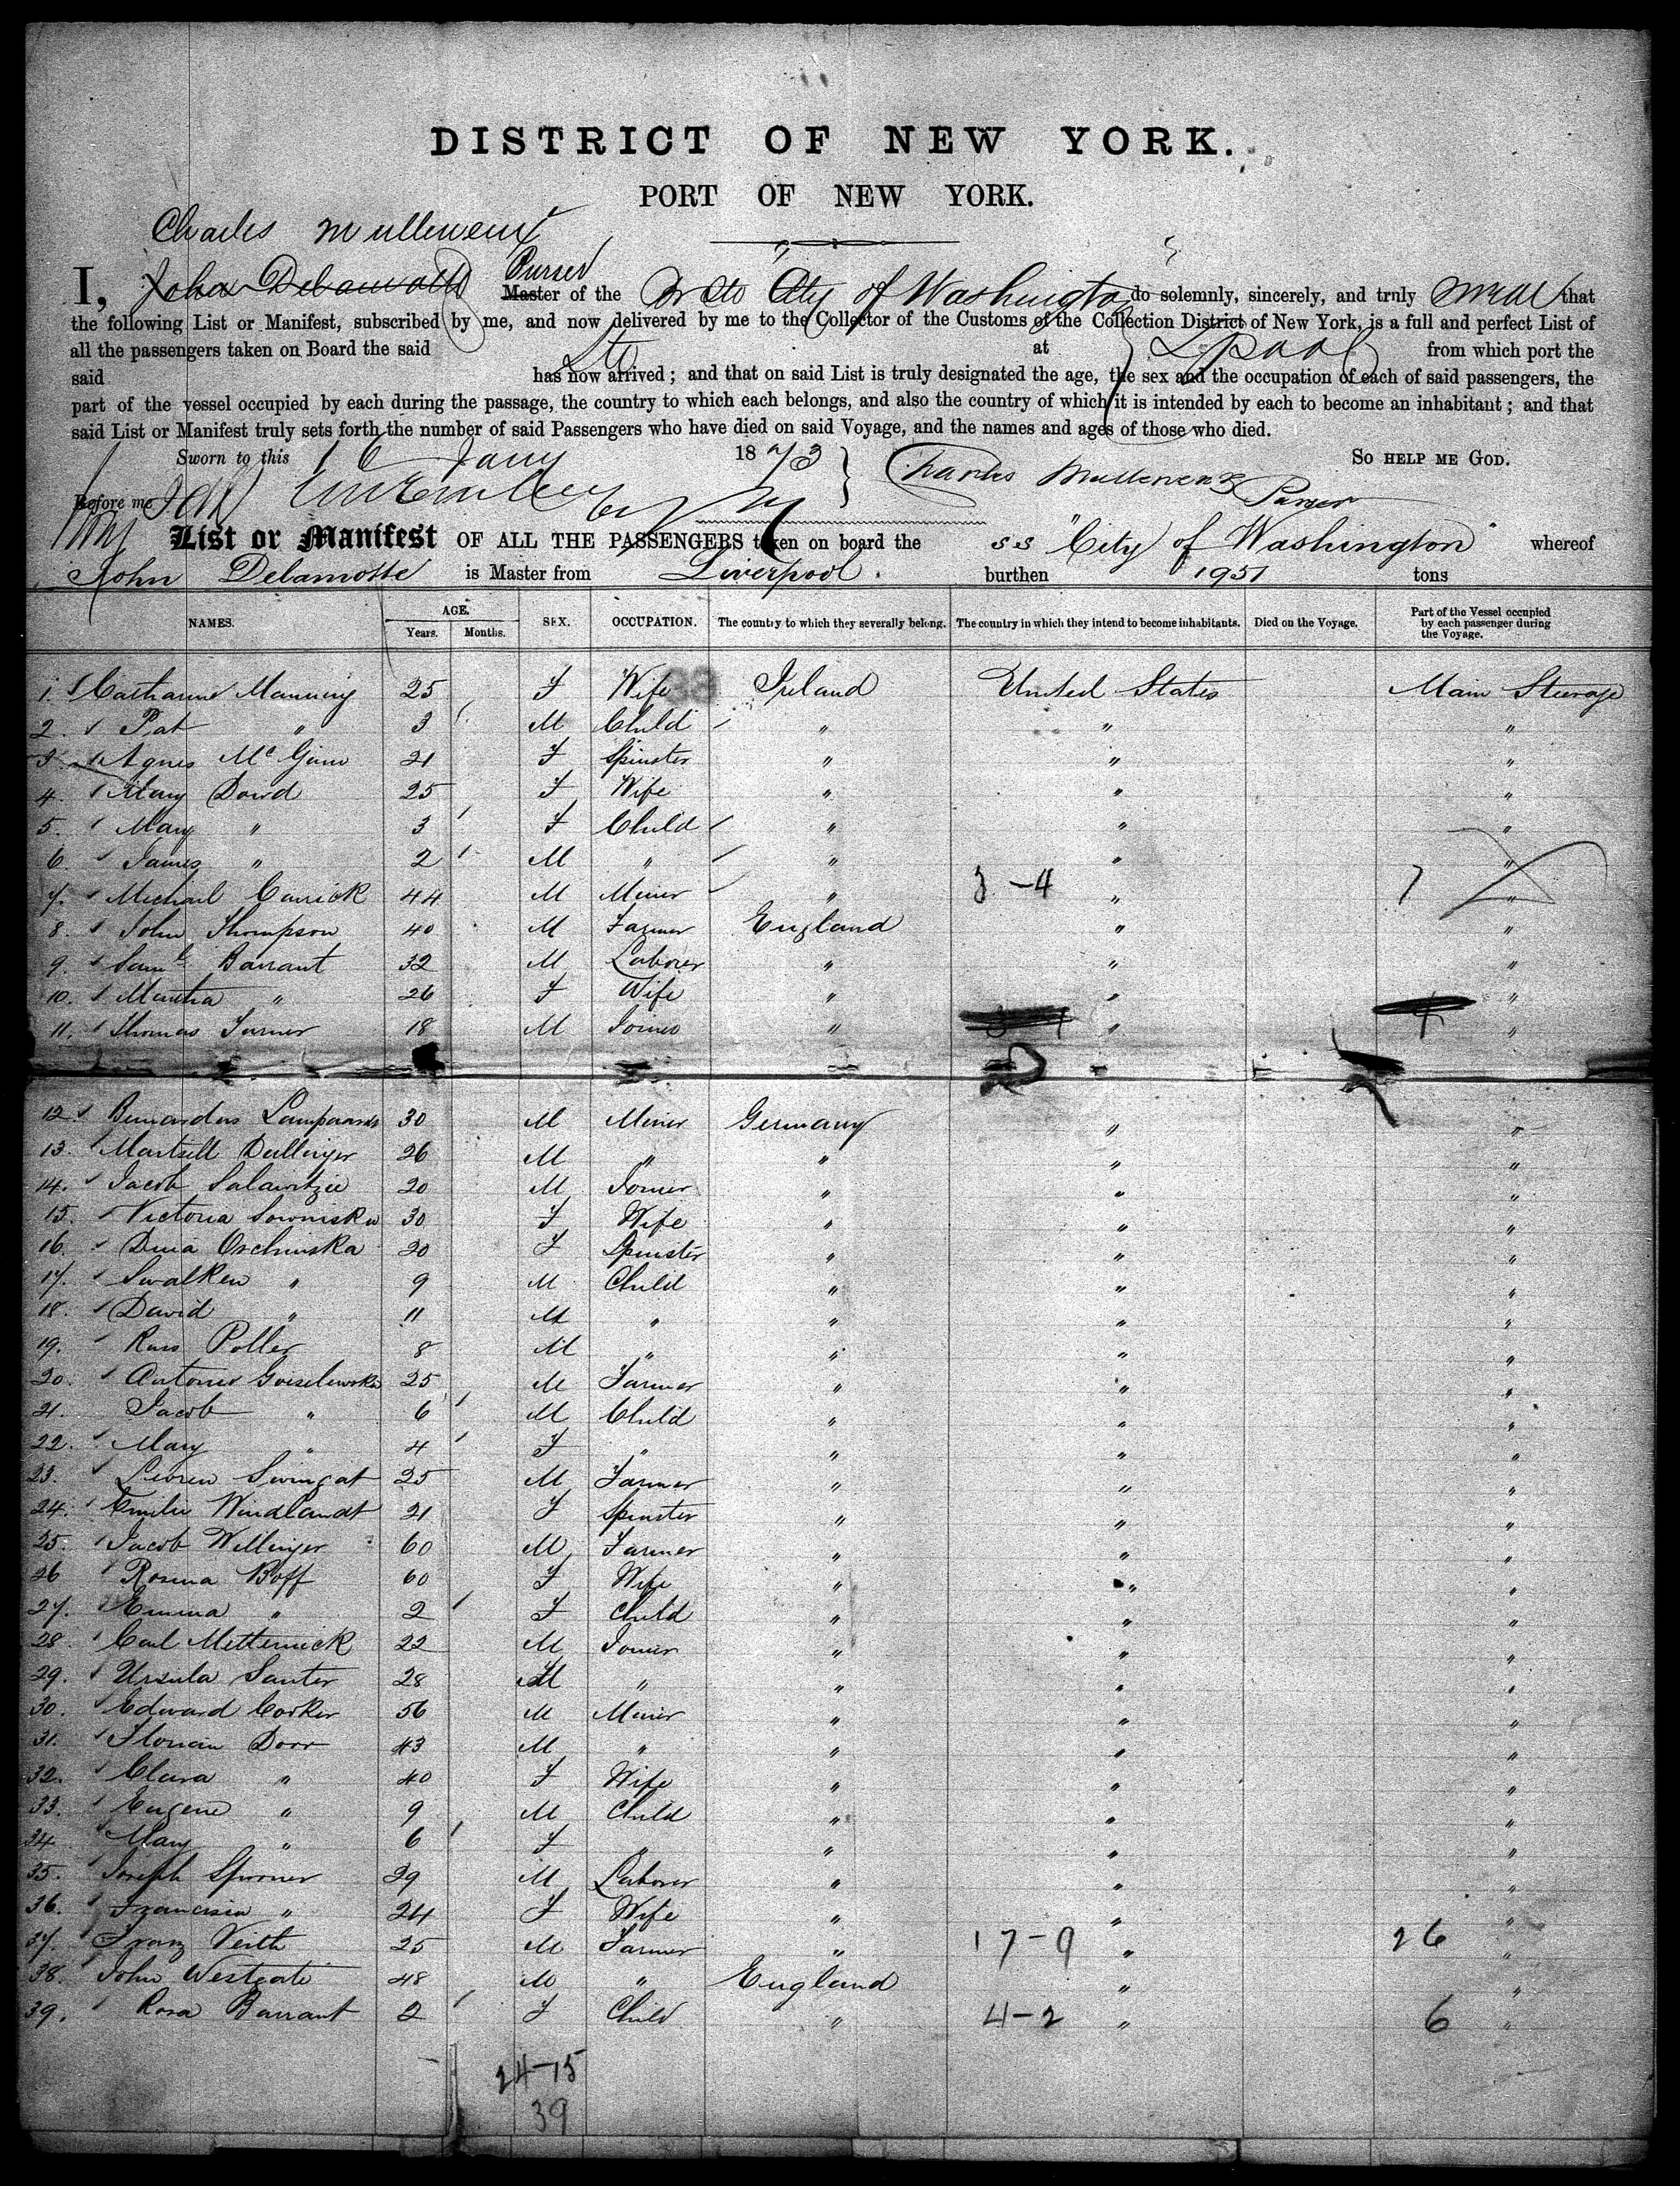 DISTRICT OF NEW YORK.
PORT OF NEW YORK.
Charles Mullineux
Purser
I, John Delamotte Master of the Br Str City of Washington do solemnly, sincerely, and truly swear that
the following List or Manifest, subscribed by me, and now delivered by me to the Collector of the Customs of the Collection District of New York, is a full and perfect List of
all the passengers taken on Board the said Str at Lpool from which port the
said has now arrived; and that on said List is truly designated the age, the sex and the occupation of each of said passengers, the
part of the vessel occupied by each during the passage, the country to which each belongs, and also the country of which it is intended by each to become an inhabitant; and that
said List or Manifest truly sets forth the number of said Passengers who have died on said Voyage, and the names and ages of those who died.
Sworn to this 16 Jany 1873 SO HELP ME GOD.
Before me Charles Mullineux Purser
List or Manifest OF ALL THE PASSENGERS taken on board the SS "City of Washington" whereof
John Delamotte is Master from Liverpool. burthen 1951 tons
NAMES. AGE. Years. Months. SEX. OCCUPATION. The country to which they severally belong. The country in which they intend to become inhabitants. Died on the Voyage. Part of the Vessel occupied by each passenger during the Voyage.
1. Catharine Manning 25 F Wife Ireland United States Main Steerage
2. Pat " 3 M Child " " "
3. Agnes McGinn 21 F Spinster " " "
4. Mary Dowd 25 F Wife " " "
5. Mary " 3 F Child " " "
6. James " 2 M " " " "
7. Michael Carrick 44 M Miner " 3-4 " 7 "
8. John Thompson 40 M Farmer England " "
9. Saml Barrant 32 M Laborer " " "
10. Martha " 26 F Wife " " "
11. Thomas Turner 18 M Joiner " " "
12. Bernardus 30 M Miner Germany " "
13. Dullinger 26 M " " " "
14. Jacob 20 M Joiner " " "
15. Victoria 30 F Wife " " "
16. Orchinska 20 F Spinster " " "
17. Swalken " 9 M Child " " "
18. David " 11 M " " " "
19. Poller 8 M " " " "
20. 25 M Farmer " " "
21. Jacob " 6 M Child " " "
22. Mary " 4 F " " " "
23. Swingat 25 M Farmer " " "
24. Emilie Windlandt 21 F Spinster " " "
25. Jacob Willinger 60 M Farmer " " "
26 Rosina Boff 60 F Wife " " "
27. Emma " 2 F Child " " "
28. Carl Metternick 22 M Joiner " " "
29. Ursula Santer 28 " " " "
30. Edward Corker 56 M Miner " " "
31. Florian Dorr 43 M " " " "
32. Clara " 40 F Wife " " "
33. Eugene " 9 M Child " " "
34. Mary " 6 F " " " "
35. Joseph Sporner 29 M Laborer " " "
36. " 24 F Wife " " "
37. Franz Veith 25 M Farmer " 17-9 " 26 "
38. John Westgate 48 M " England " "
39. Rosa Barrant 2 F Child " 4-2 " 6 "
24-15
39